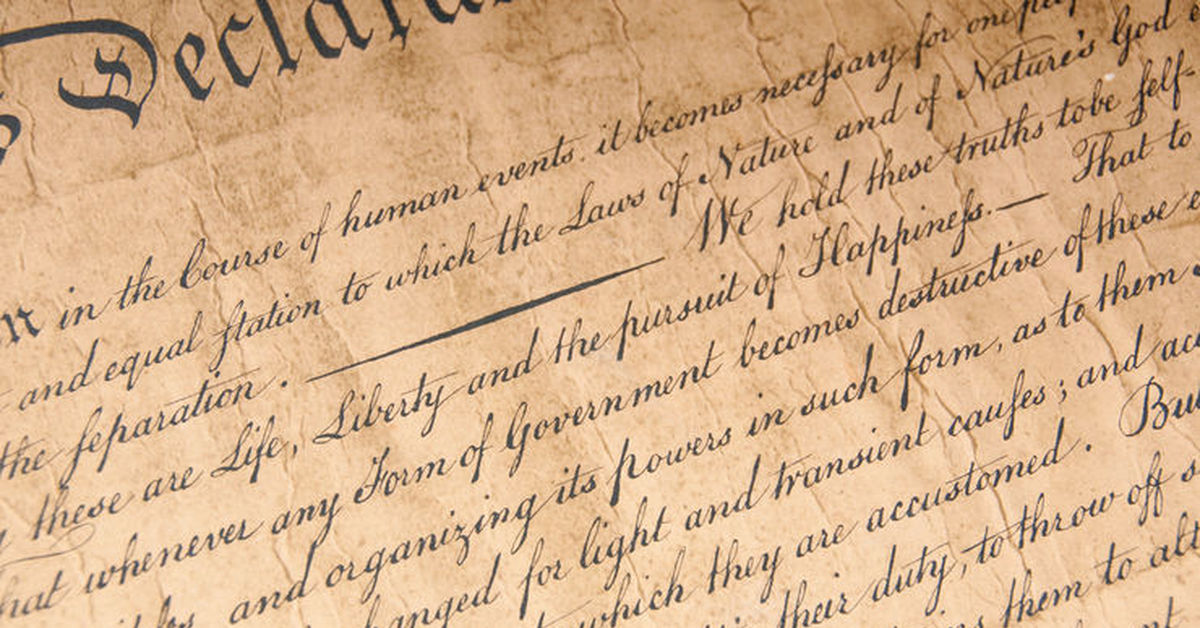 Declara
in the Course of human events. it becomes neceſsary for one
and equal ſtation to which the Laws of Nature and of Nature's God
the ſeparation. — We hold these truths to be ſelf-
these are Life, Liberty and the pursuit of Happineſs. — That to
whenever any Form of Government becomes destructive of these
and organizing its powers in such form, as to them
for light and transient cauſes; and
which they are accustomed. 
their duty, to throw off
them to